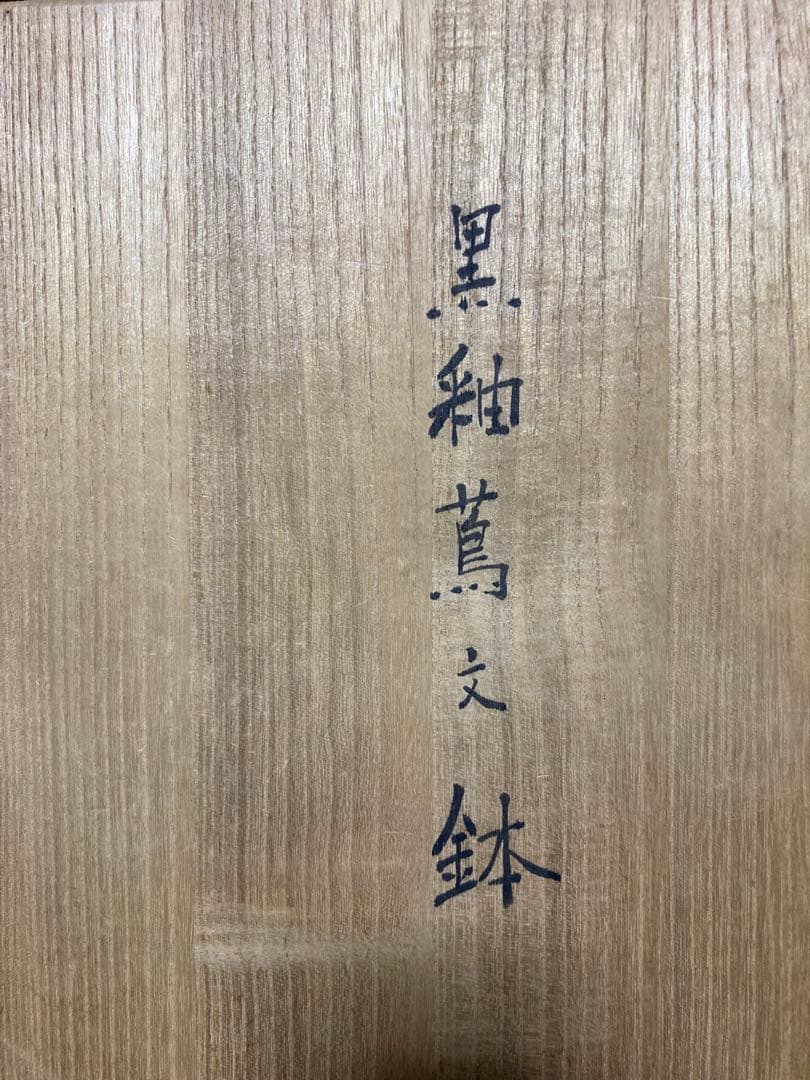 黒釉蔦文鉢